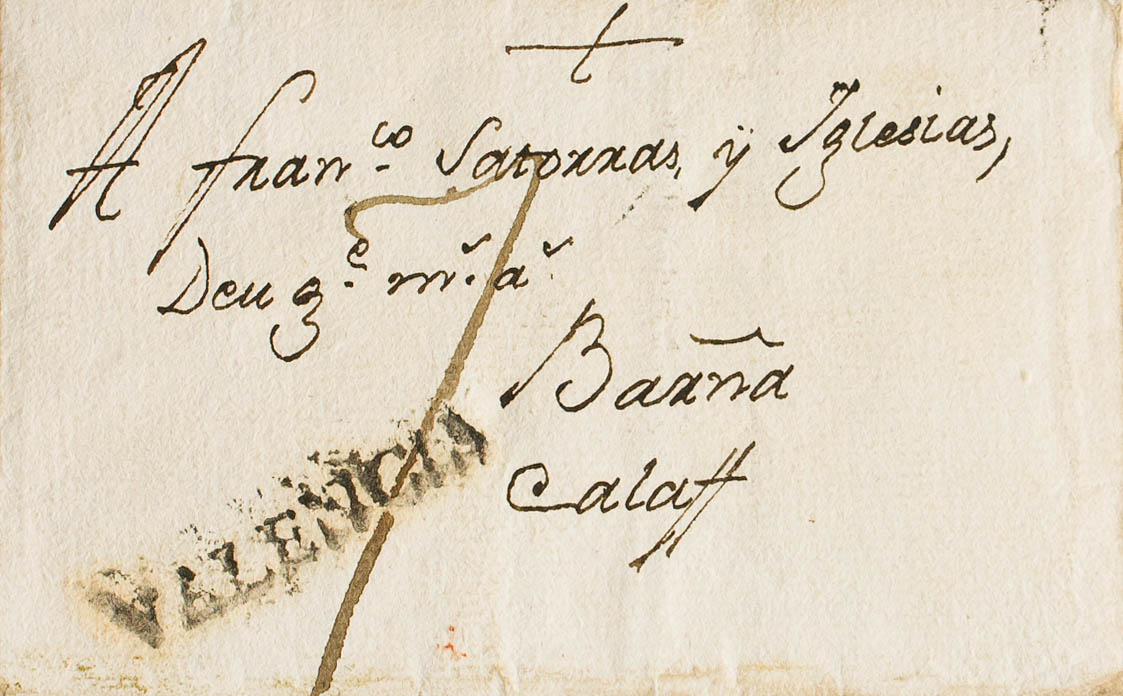 A Fran.co Satorras, ÿ Iglesias,
Deu g.e m.s a.s
Barña
Calaff
7
VALENCIA